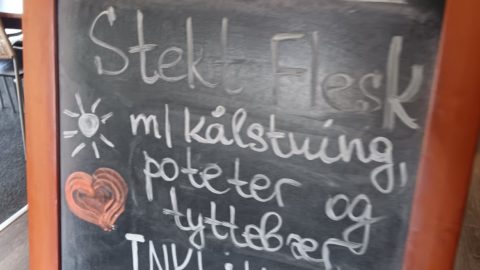 Stekt Flesk
m/kålstuing,
poteter og
tyttebær